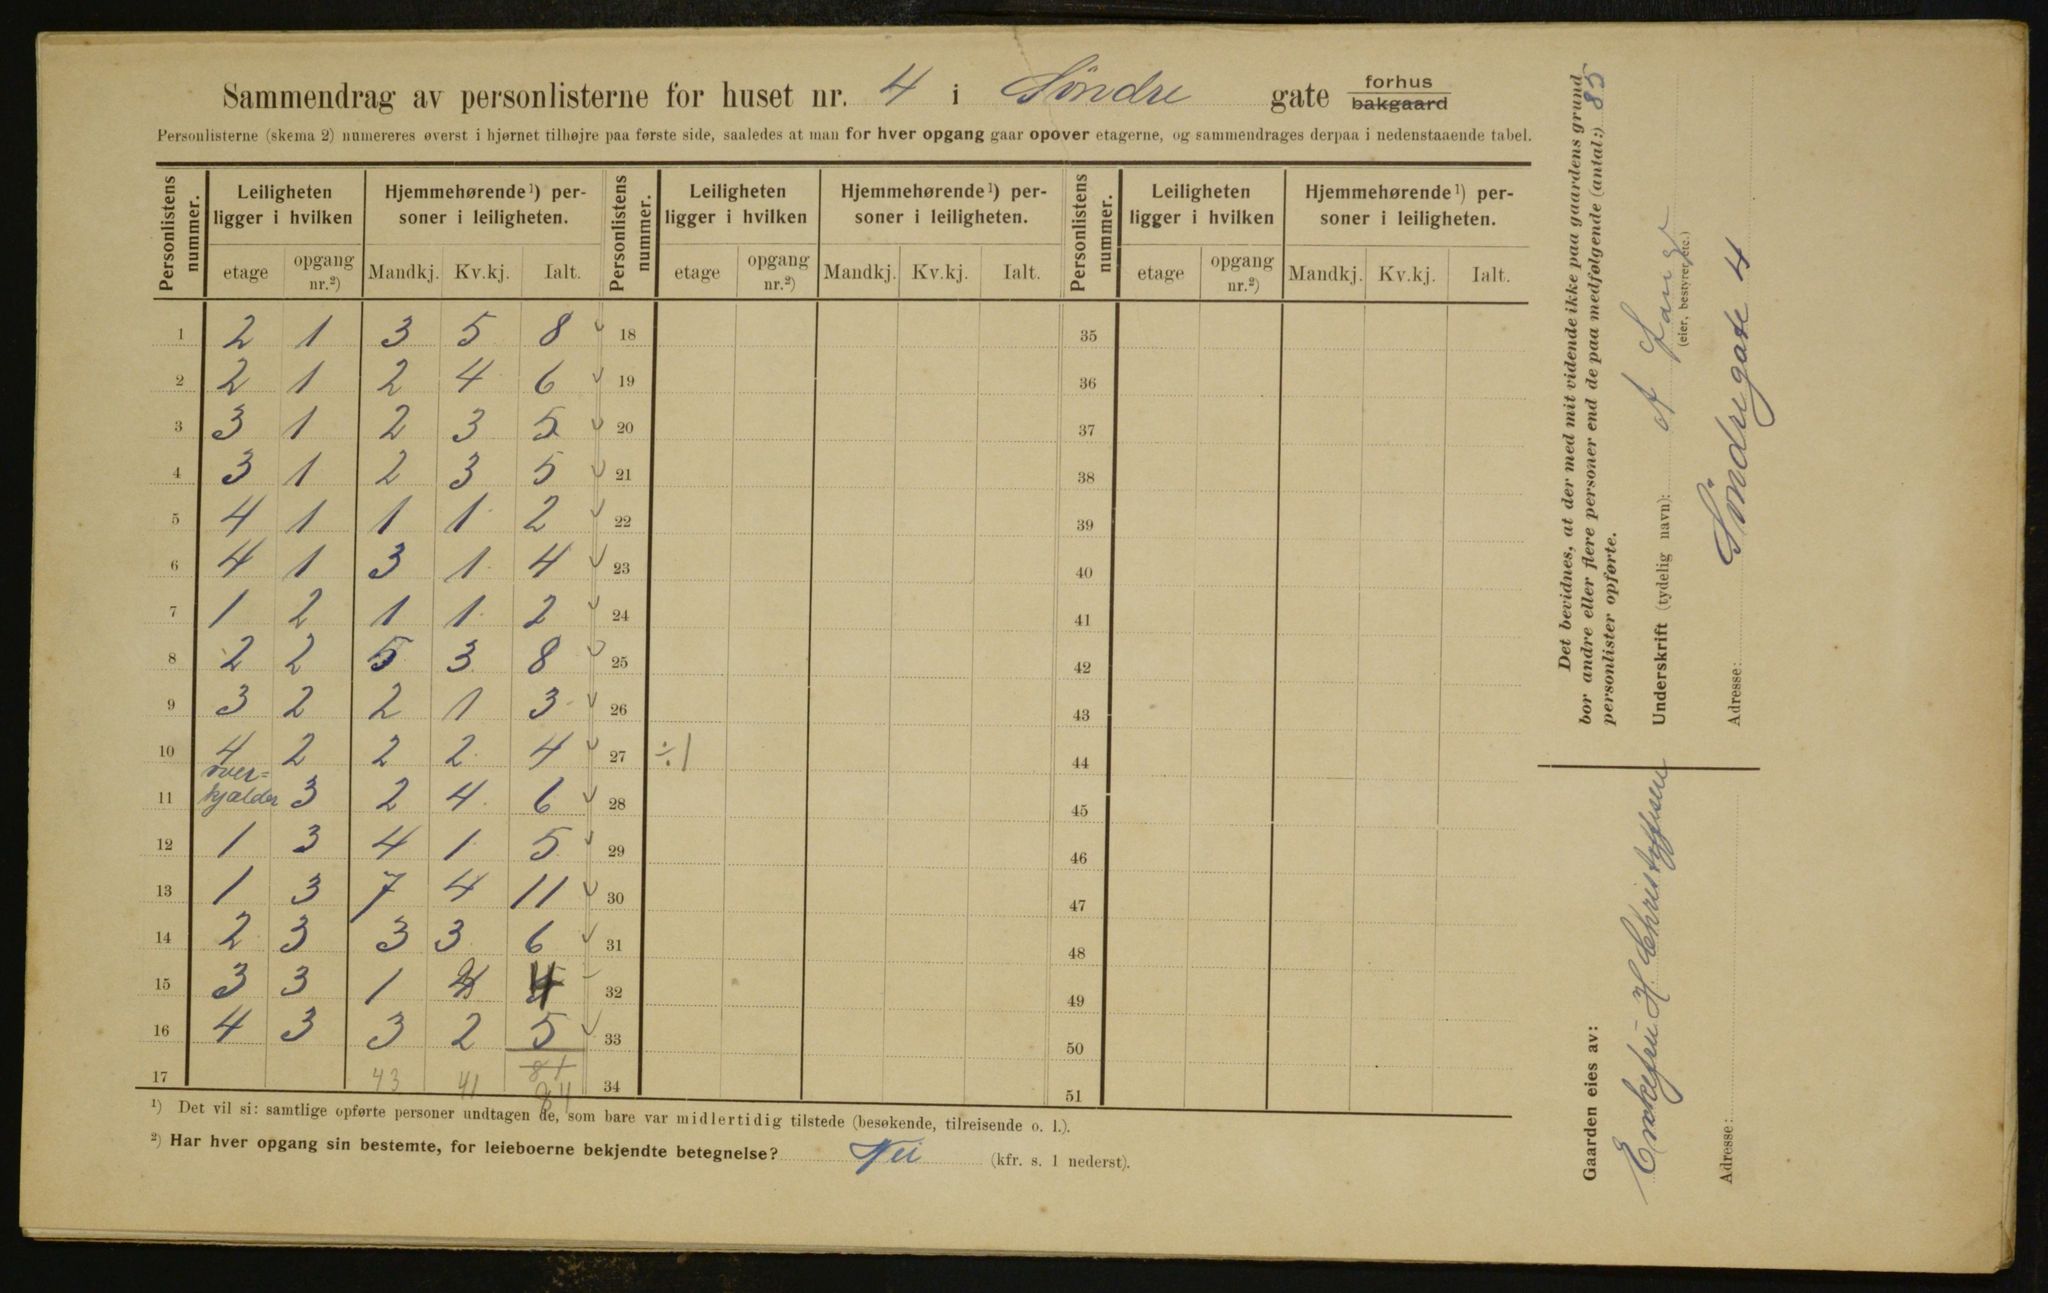 Sammendrag av personlisterne for huset nr. 4 i Söndre gate forhus bakgaard
Personlisterne (skema 2) numereres øverst i hjørnet tilhøjre paa første side, saaledes at man for hver opgang gaar opover etagerne, og sammendrages derpaa i nedenstaaende tabel.
Personlistens nummer. Leiligheten ligger i hvilken Hjemmehørende¹) personer i leiligheten. Personlistens nummer. Leiligheten ligger i hvilken Hjemmehørende¹) personer i leiligheten. Personlistens nummer. Leiligheten ligger i hvilken Hjemmehørende¹) personer i leiligheten.
etage opgang nr.²) Mandkj. Kv.kj. Ialt. etage opgang nr.²) Mandkj. Kv.kj. Ialt. etage opgang nr.²) Mandkj. Kv.kj. Ialt.
1 2 1 3 5 8 18 35
2 2 1 2 4 6 19 36
3 3 1 2 3 5 20 37
4 3 1 2 3 5 21 38
5 4 1 1 1 2 22 39
6 4 1 3 1 4 23 40
7 1 2 1 1 2 24 41
8 2 2 5 3 8 25 42
9 3 2 2 1 3 26 43
10 4 2 2 2 4 27 ÷1 44
11 over=kjælder 3 2 4 6 28 45
12 1 3 4 1 5 29 46
13 1 3 7 4 11 30 47
14 2 3 3 3 6 31 48
15 3 3 1 4 32 49
16 4 3 3 2 5 33 50
17 43 41 84 34 51
¹) Det vil si: samtlige opførte personer undtagen de, som bare var midlertidig tilstede (besøkende, tilreisende o. l.).
²) Har hver opgang sin bestemte, for leieboerne bekjendte betegnelse? Nei (kfr. s. 1 nederst).
Det bevidnes, at der med mit vidende ikke paa gaardens grund
bor andre eller flere personer end de paa medfølgende (antal:) 85
personlister opførte.
Underskrift (tydelig navn):
(eier, bestyrer, etc.)
Adresse: Söndregate 4
Gaarden eies av:
Enkefru H Christoffersen
Adresse: